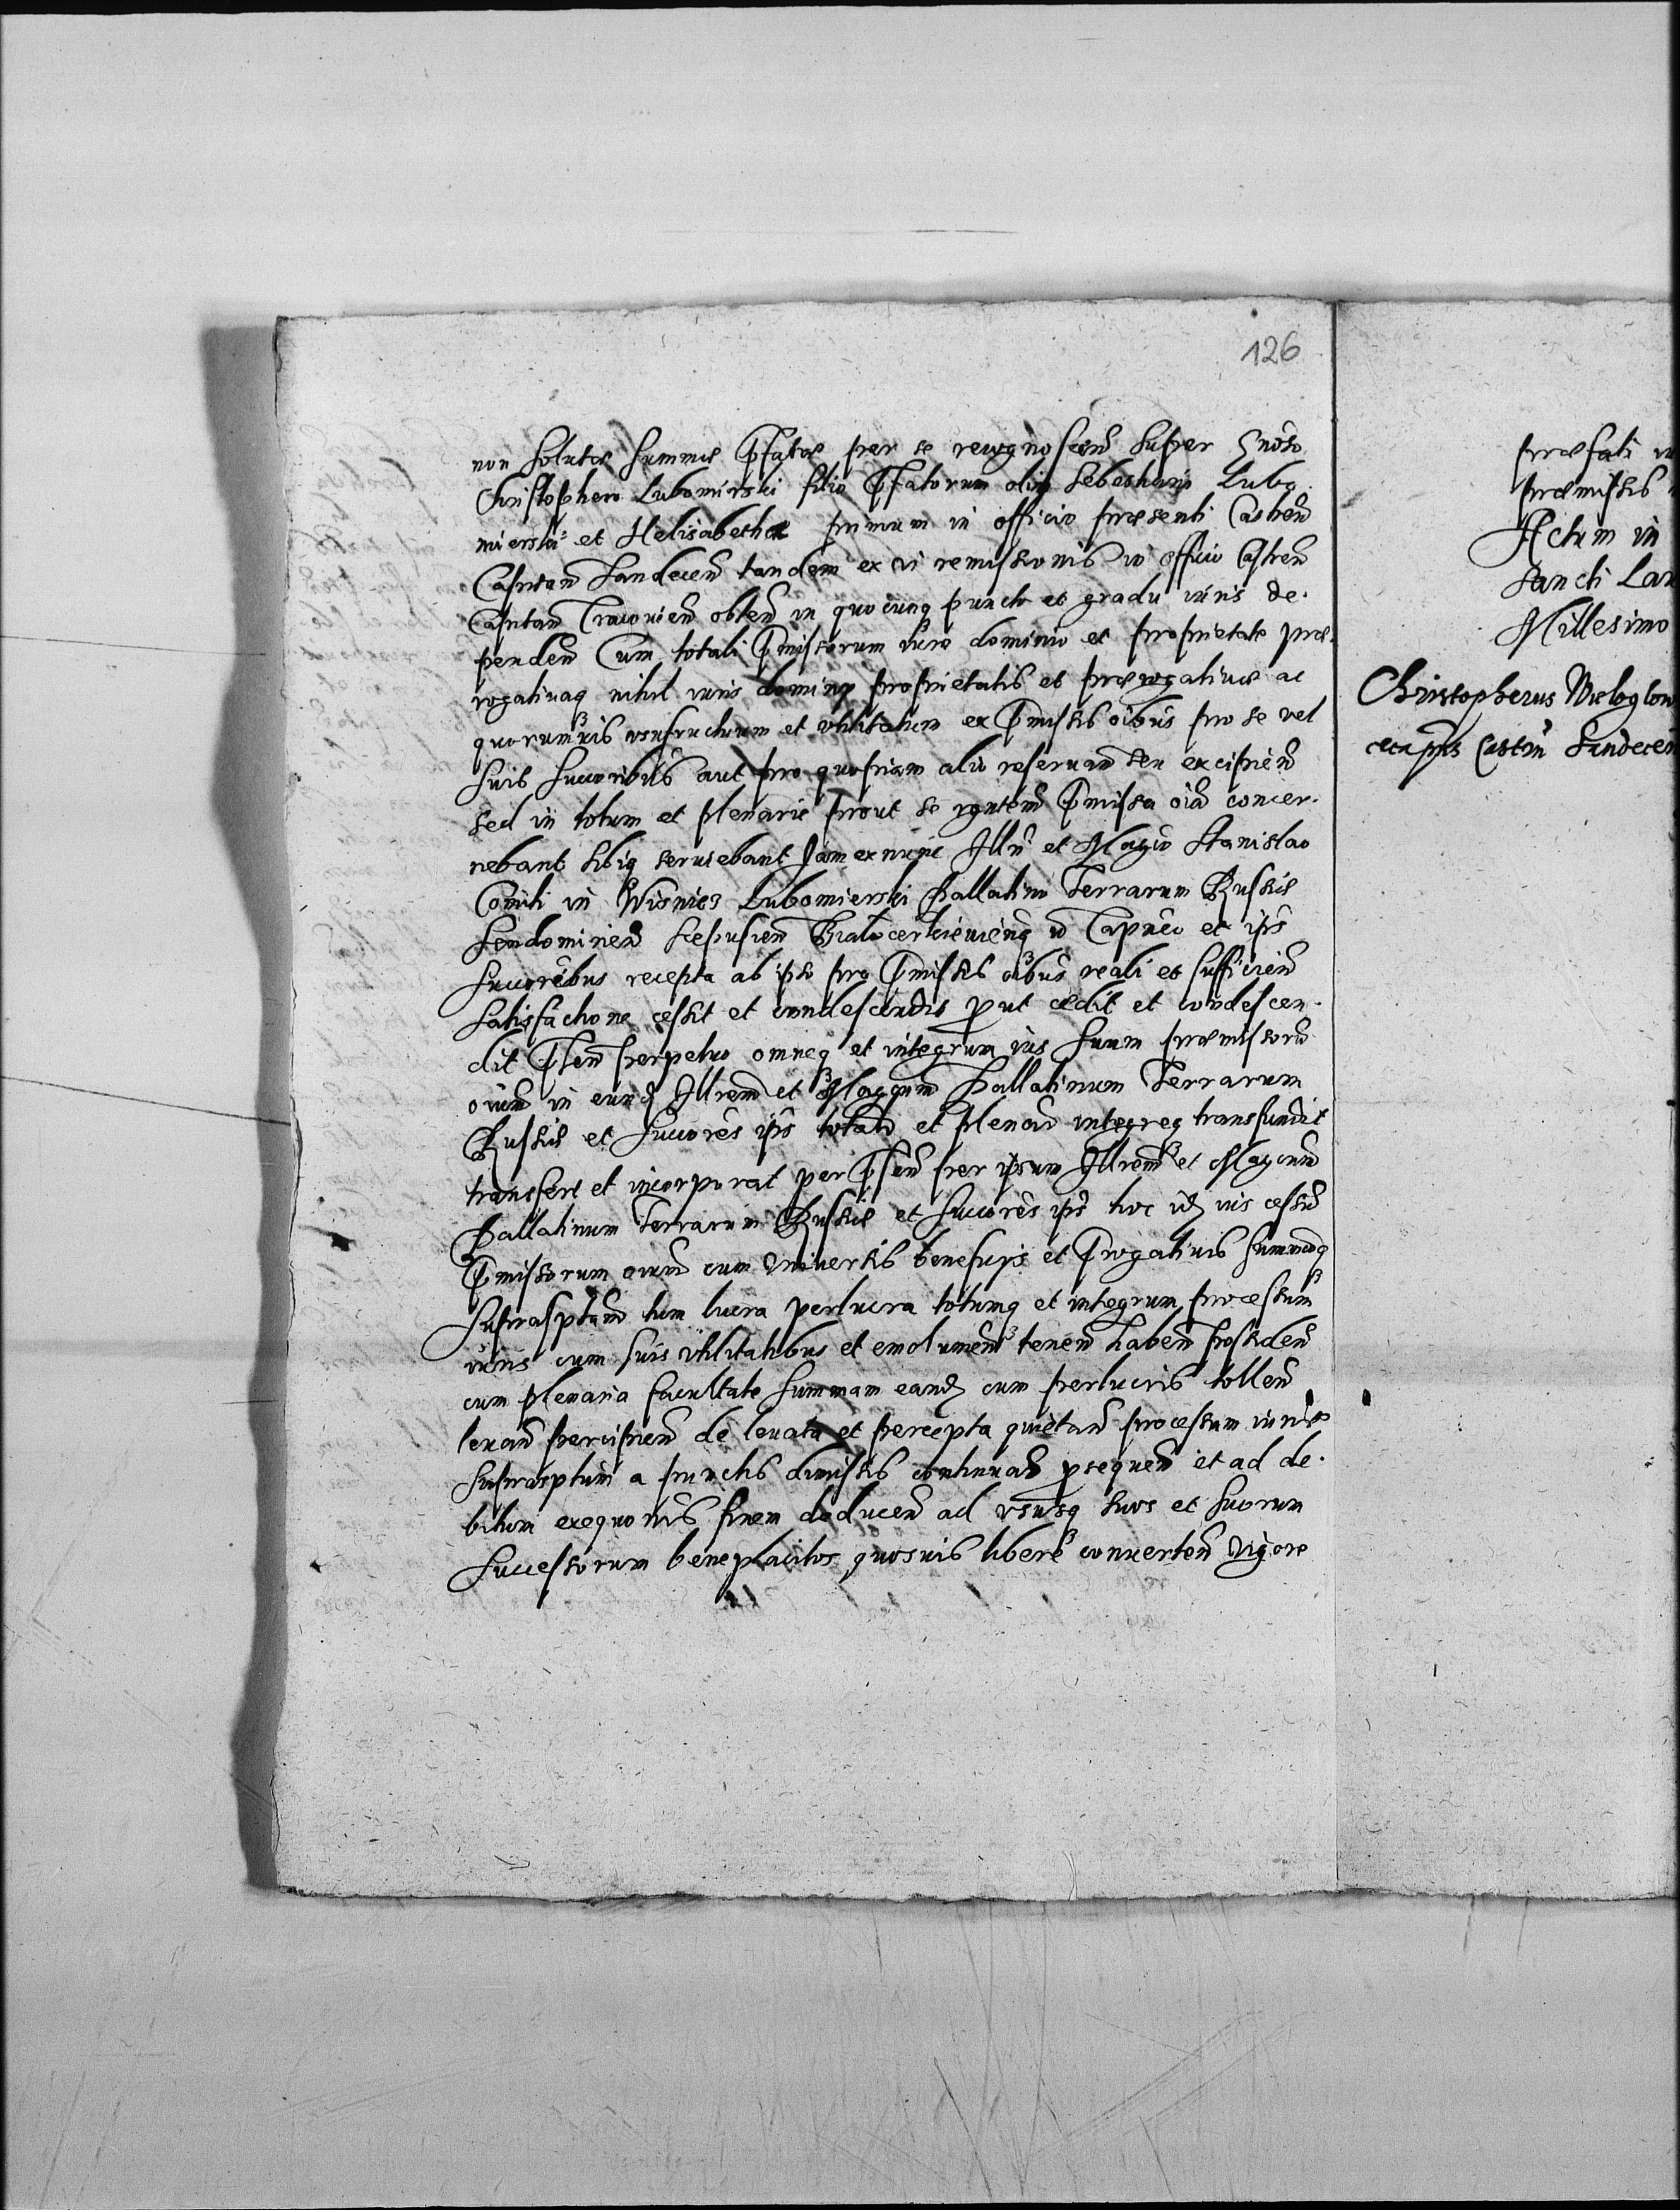 126
non solutæ summæ Pfatæ per se recognoscen̄ super Gnōso
Christophero Lubomirski filio Pfatorum olim Sebastiani Lubo
mierski et Helisabethæ primum in officio præsenti Castren̄
Capitan̄ Sandecen̄ tandem ex vi remissionis in officio Castren̄
Capitan̄ Cracovien̄ obten̄ in quocunq puncto et gradu iuris de-
penden̄ Cum totali Pmissorum iure dominio et proprietate præ-
rogativaq nihil iuris dominy proprietatis et prærogativæ ac
quorumvis usufructuum et utilitatum ex Pmissis oībus pro se vel
suis succoribus aut pro quopiam alio reservan̄ seu excipien̄
sed in totum et plenarie prout se Pmissa oīa concer-
nebant sibiq serviebant Jam ex nunc Illri et Mag̃co Stanislao
Comiti in Wisnicz Lubomierski Pallatino Terrarum Russiæ
Sendomirien̄ Scepusien̄ Bialocerkievienq Capneo et ip̄s
succorebus recepta ab ipso pro Pmissis oībus reali et sufficien̄
satisfactione cessit et condescendit prout cedit et condescen-
dit Psen̄ perpetuo omneq et integrum ius suum præmissorū
oīum in eund Illrem et Magcum Pallatinum Terrarum
Russiæ et succorēs ip̄s totalr et plenarie integreq transfundit
transfert et incorporat per Psen̄ per ipsum Illrem et Magcum
Pallatinum Terrarum Russiæ et succorēs ip̄s hoc id ius cessū
Pmissorum oīum cum universis beneficys et Prrogativis summaq
supraspta tum lucra perlucra totumq et integrum processum
iuris cum suis utilitatibus et emolumen̄ tenen̄ haben̄ possiden̄
cum plenaria facultate summam eand cum perlucris tollen̄
levan̄ percipien̄ de levata et percepta quietan̄ processum iuris
supraspltum a punctis dimissis continuan̄ prsequen̄ et ad de-
bitum exequonis finem deducen̄ ad ususq suos et suorum
successorum beneplacitos quosvis libere converten̄ Vigore
præfati
præmissis
Actum in
sancti Lau
Millesimo
Christopherus
Castrn̄ Sandecen